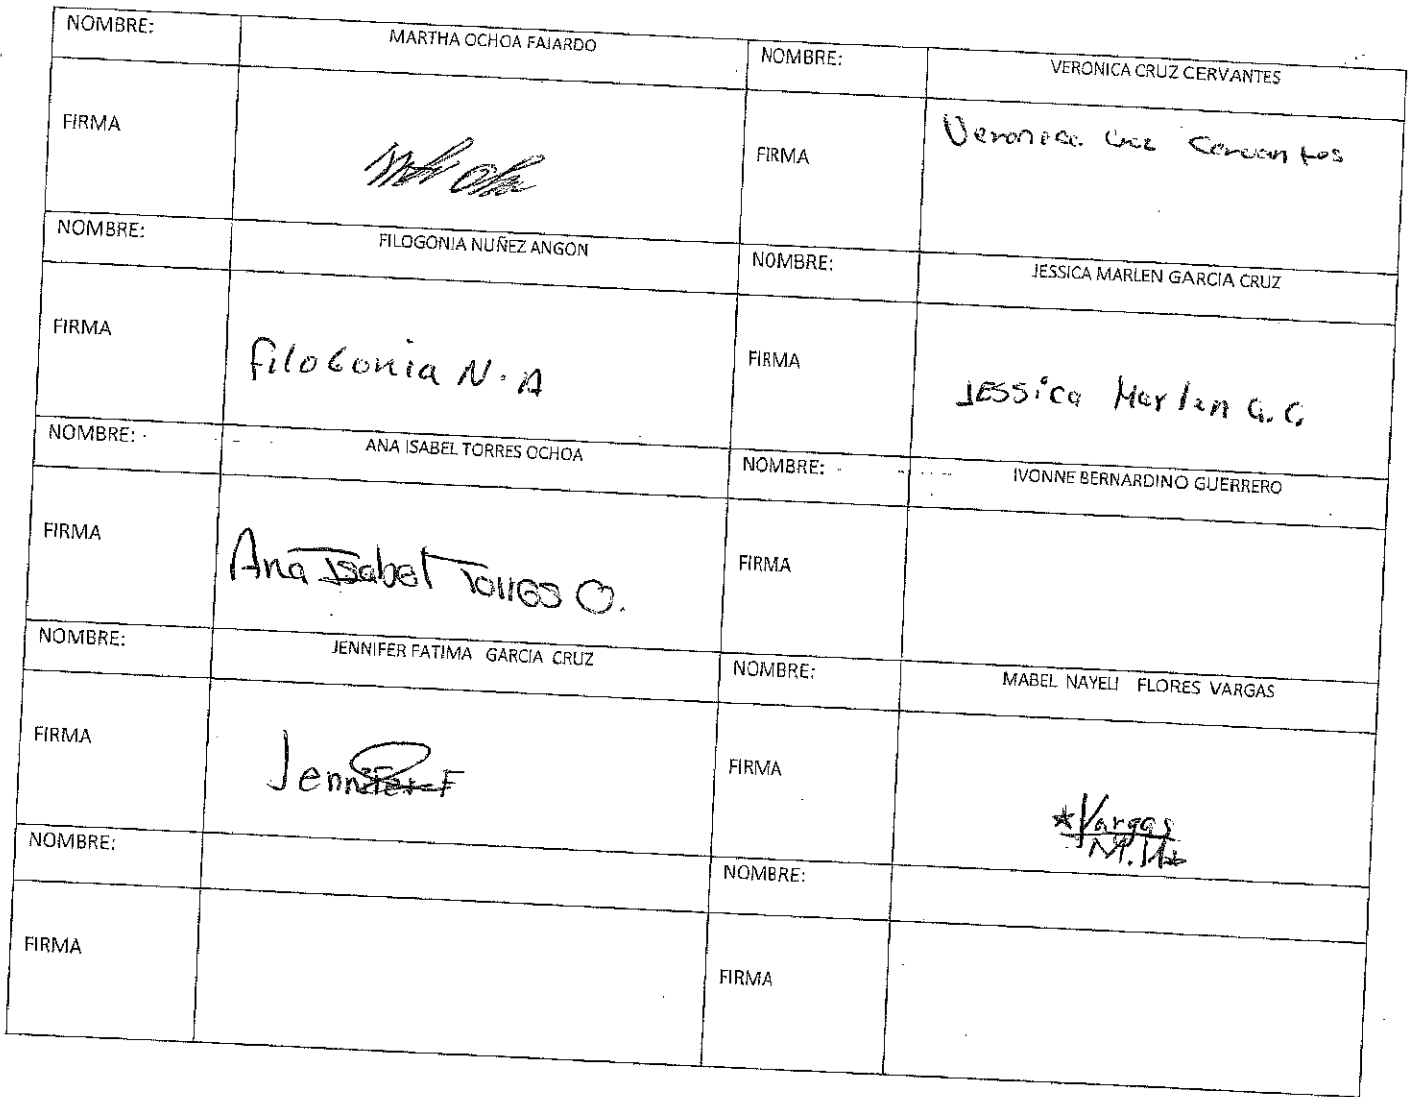 NOMBRE: MARTHA OCHOA FAJARDO NOMBRE: VERONICA CRUZ CERVANTES
FIRMA FIRMA Veronica Cruz Cervantes
NOMBRE: FILOGONIA NUÑEZ ANGON NOMBRE: JESSICA MARLEN GARCIA CRUZ
FIRMA filoGonia N. A FIRMA JESSica Marlen G. C
NOMBRE: ANA ISABEL TORRES OCHOA NOMBRE: IVONNE BERNARDINO GUERRERO
FIRMA Ana Isabel Torres O. FIRMA
NOMBRE: JENNIFER FATIMA GARCIA CRUZ NOMBRE: MABEL NAYELI FLORES VARGAS
FIRMA Jennifer F FIRMA Vargas
NOMBRE: NOMBRE:
FIRMA FIRMA